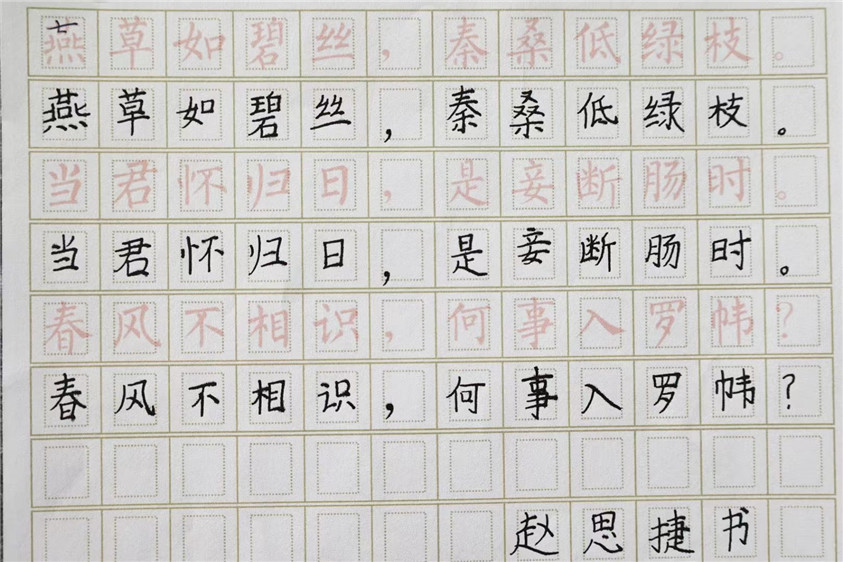 燕草如碧丝，秦桑低绿枝。
燕草如碧丝，秦桑低绿枝。
当君怀归日，是妾断肠时。
当君怀归日，是妾断肠时。
春风不相识，何事入罗帏？
春风不相识，何事入罗帏？
赵思捷书